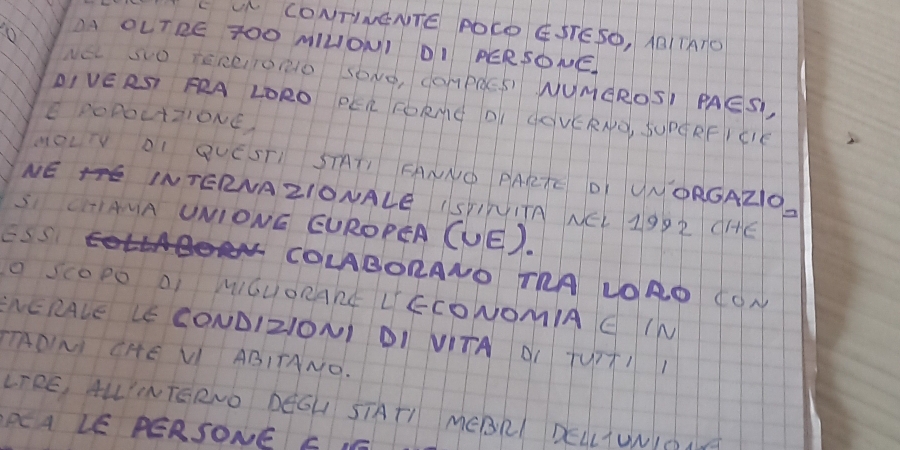 È UN CONTINENTE POCO ESTESO, ABITATO
DA OLTRE 700 MILIONI DI PERSONE.
NEL SUO TERRITORIO SONO, COMPRESI NUMEROSI PAESI,
DIVERSI FRA LORO PER FORME DI GOVERNO, SUPERFICIE
E POPOLAZIONE,
MOLTI DI QUESTI STATI FANNO PARTE DI UN'ORGAZIO=
NE INTERNAZIONALE ISTITUITA NEL 1992 CHE
SI CHIAMA UNIONE EUROPEA (UE).
ESSI COLLABORN COLABORANO TRA LORO CON
LO SCOPO DI MIGLIORARE L'ECONOMIA E IN
ENERALE LE CONDIZIONI DI VITA DI TUTTI I
TTADINI CHE VI ABITANO.
LTRE, ALL'INTERNO DEGLI STATI MEBRI DELL'UNIONE
PEA LE PERSONE E LE